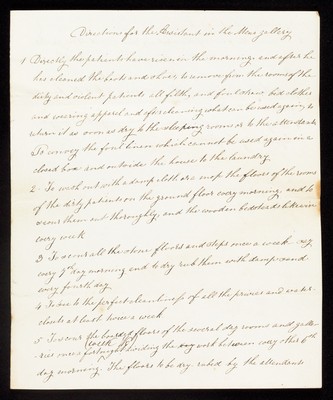 Directions for the Assistant in the Mens gallery
1 Directly the patients have risen in the morning and after he
has cleaned the boots and shoes to remove from the rooms of the
dirty and violent patients all filthy and foul straw bed clothes
and wearing apparel and after cleaning what can be used again, to
return it as soon as dry to the sleeping rooms or to the attendants
To convey the foul linen which cannot be used again in a
closed box and outside the house to the laundry.
2 To wash out with a damp cloth or a mop the floors of the rooms
of the dirty patients on the ground floor every morning, and to
scour them out thoroughly and the wooden bedsteads likewise
every week
3 To scour all the stone floors and steps once a week
every 7th day morning and to dry rub them with damp sand
every fourth day
4 To see to the perfect cleanliness of all the privies and water
closets at least twice a week
5 To scour the boarded floors of the several day rooms and galle-
ries once a fortnight dividing the work between every other 6th
day morning. The floors to be dry rubbed by the attendants